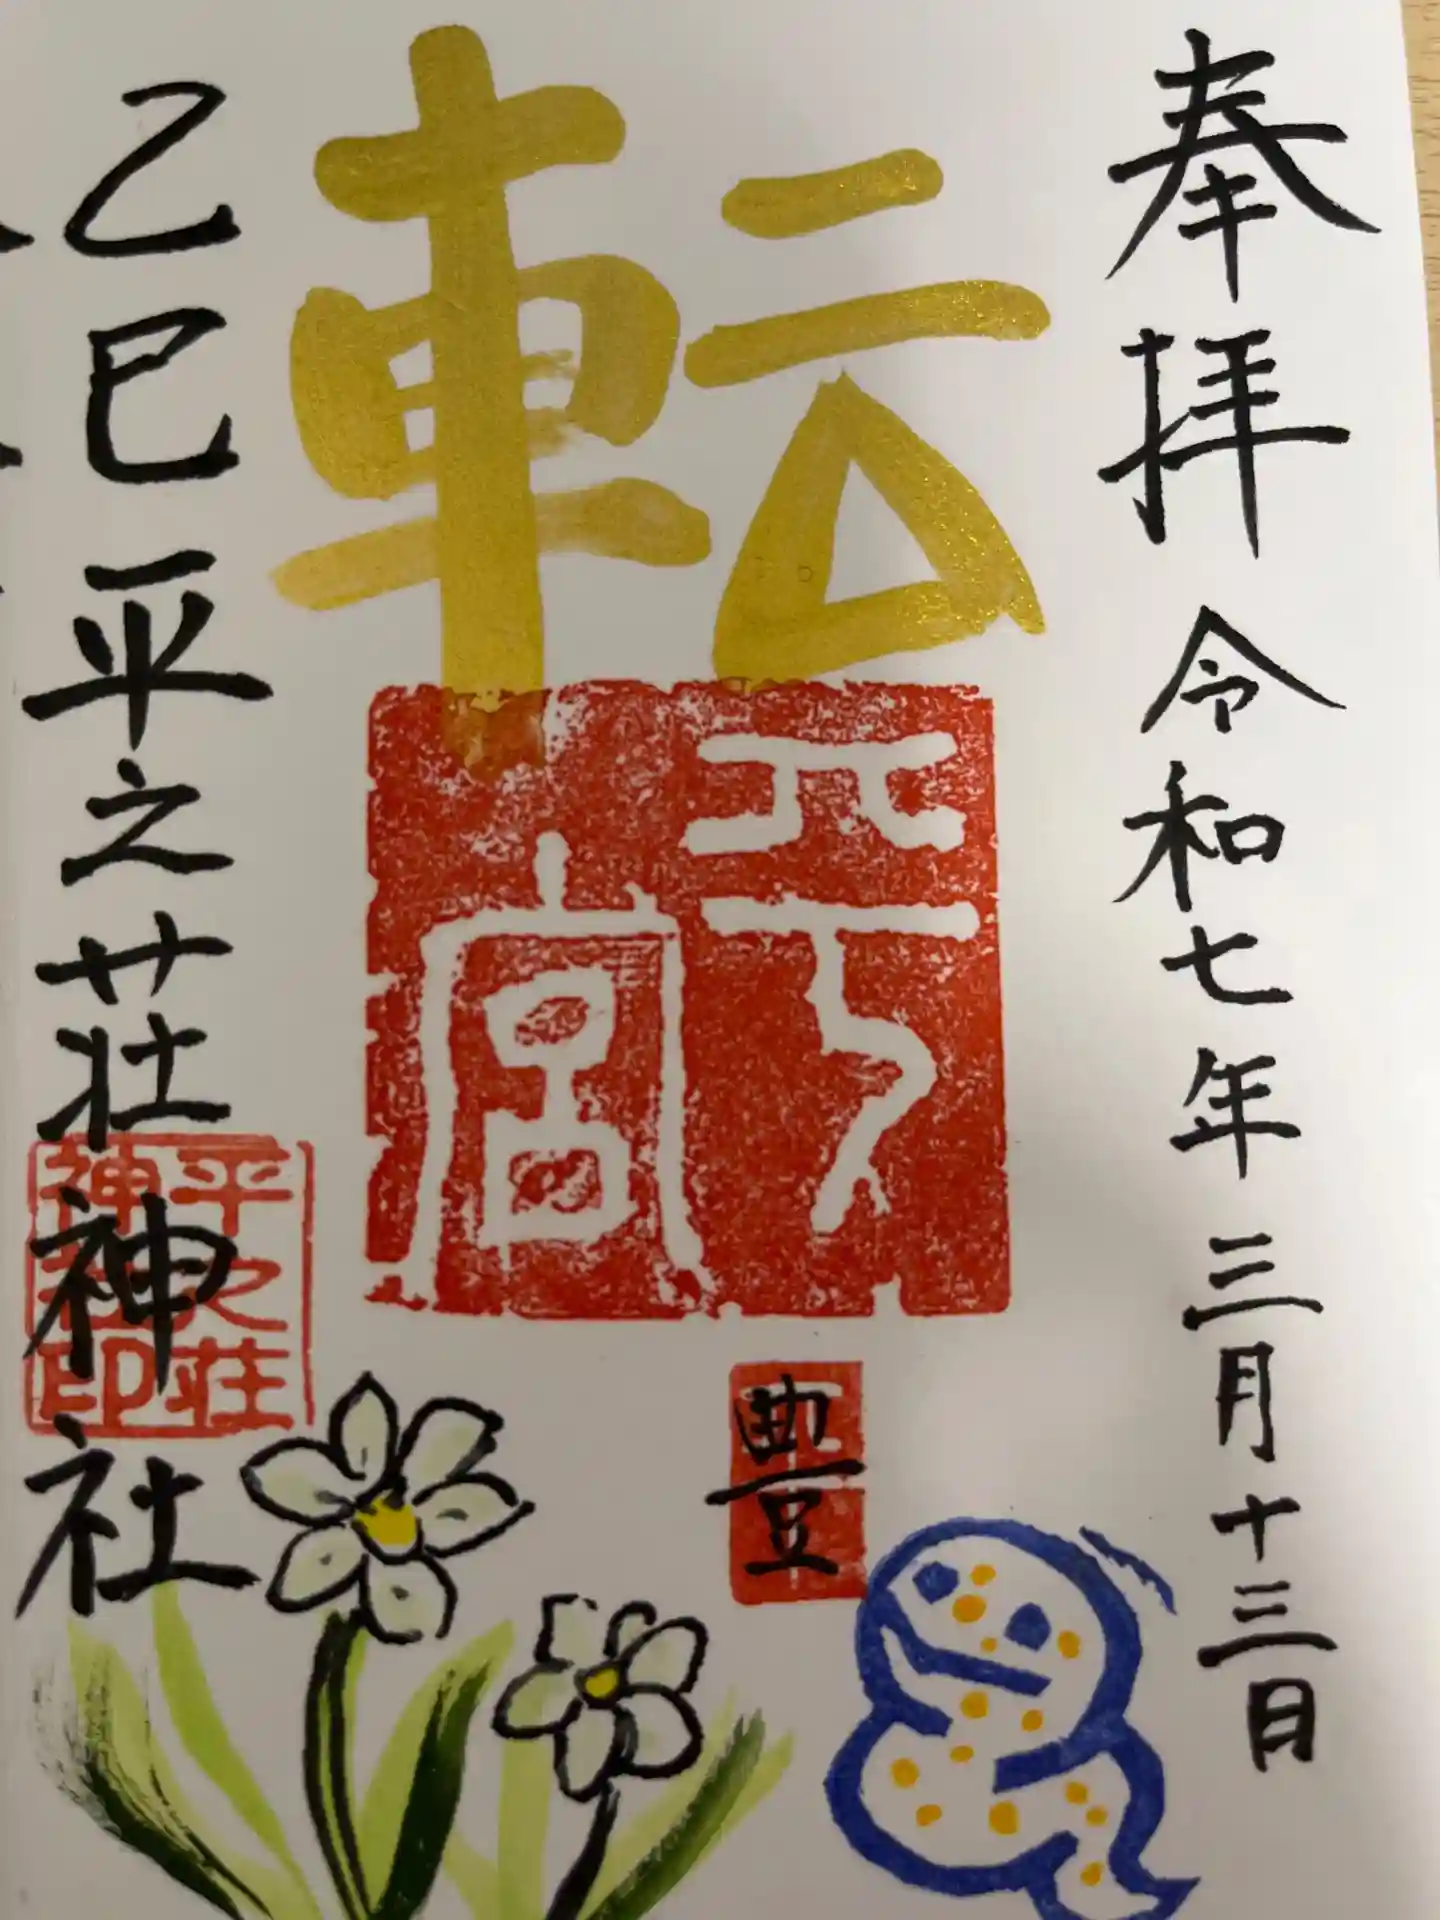 奉拝 令和七年三月十三日
転
平乃宮
豊
乙巳 平之荘神社
平之荘
神社印